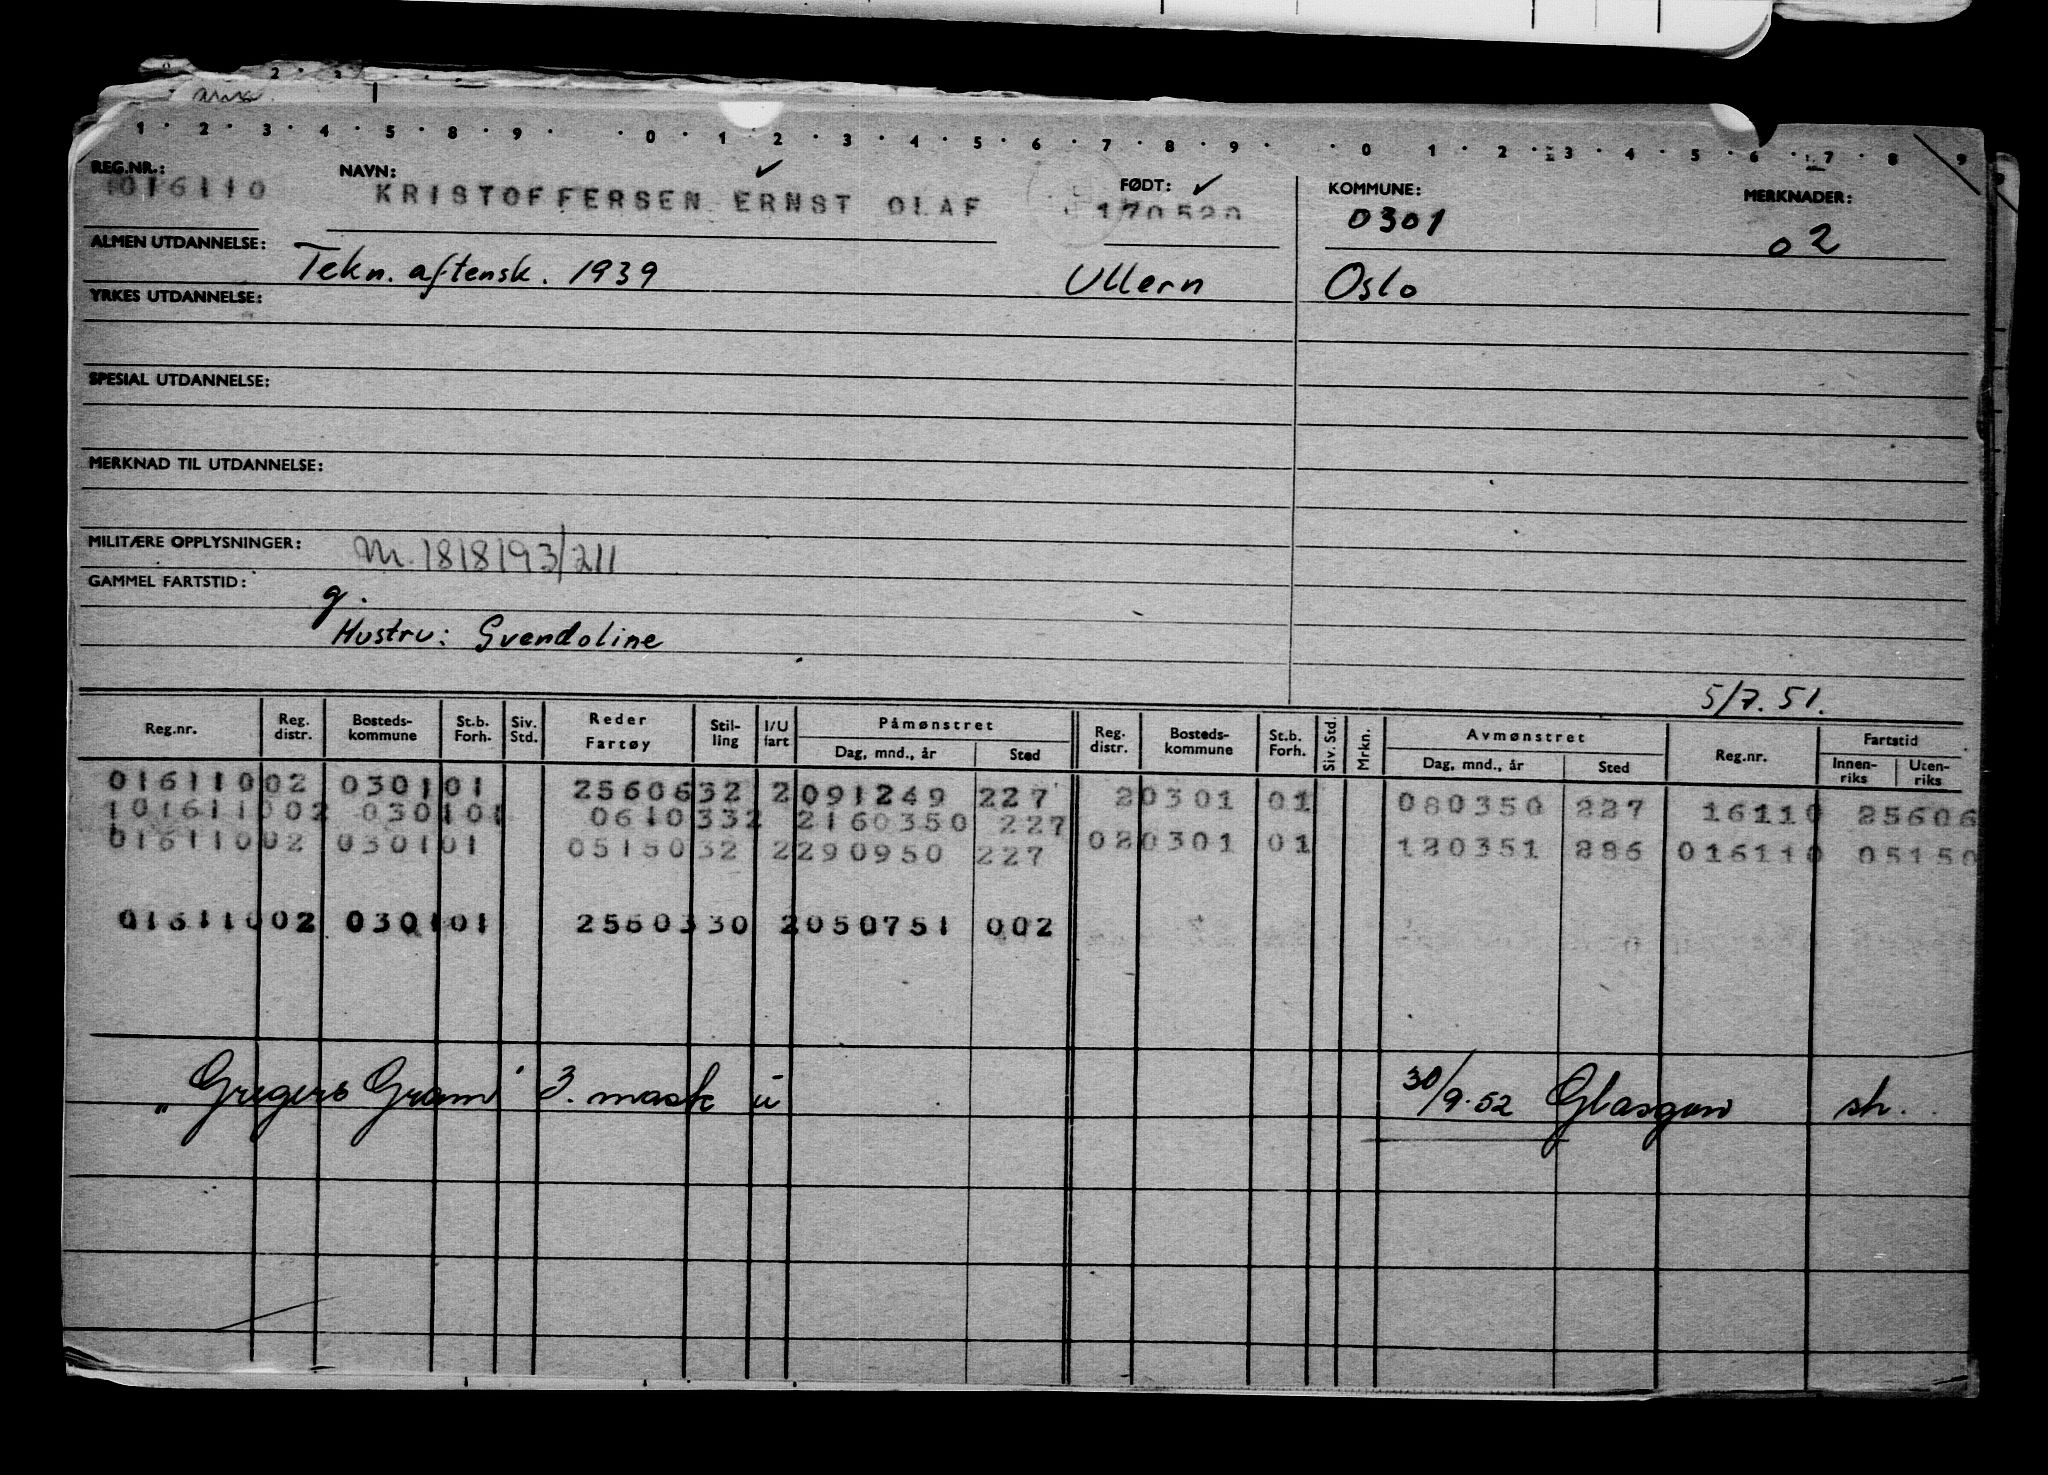 1 · 2 · 3 · 4 · 5 · 8 · 9 · · 0 · 1 · 2 · 3 · 4 · 5 · 6 · 7 · 8 · 9 · · 0 · 1 · 2 · 3 · 4 · 5 · 6 · 7 · 8 · 9
REG.NR.: NAVN: FØDT: KOMMUNE: MERKNADER:
1016110 KRISTOFFERSEN ERNST OLAF 170520 0301 02
ALMEN UTDANNELSE: Tekn. aftensk. 1939 Ullern Oslo
YRKES UTDANNELSE:
SPESIAL UTDANNELSE:
MERKNAD TIL UTDANNELSE:
MILITÆRE OPPLYSNINGER: M. 1818193/211
GAMMEL FARTSTID: g.
Hustru: Gvendoline
5/7. 51.
Reg.nr. Reg. distr. Bosteds-kommune St.b. Forh. Siv. Std. Reder Fartøy Stil-ling I/U fart Påmønstret Reg. distr. Bosteds-kommune St.b. Forh. Siv. Std. Mrkn. Avmønstret Reg.nr. Fartstid
Dag, mnd., år Sted Dag, mnd., år Sted Innen-riks Uten-riks
01611002 030101 2560632 2091249 227 20301 01 080350 227 16110 25606
101611002 030101 0610332 2160350 227
01611002 030101 0515032 2290950 227 020301 01 120351 286 016110 05150
01611002 030101 2560330 2050751 002
„Gregers Gram" 3. mask u 30/9.52 Glasgow sh.